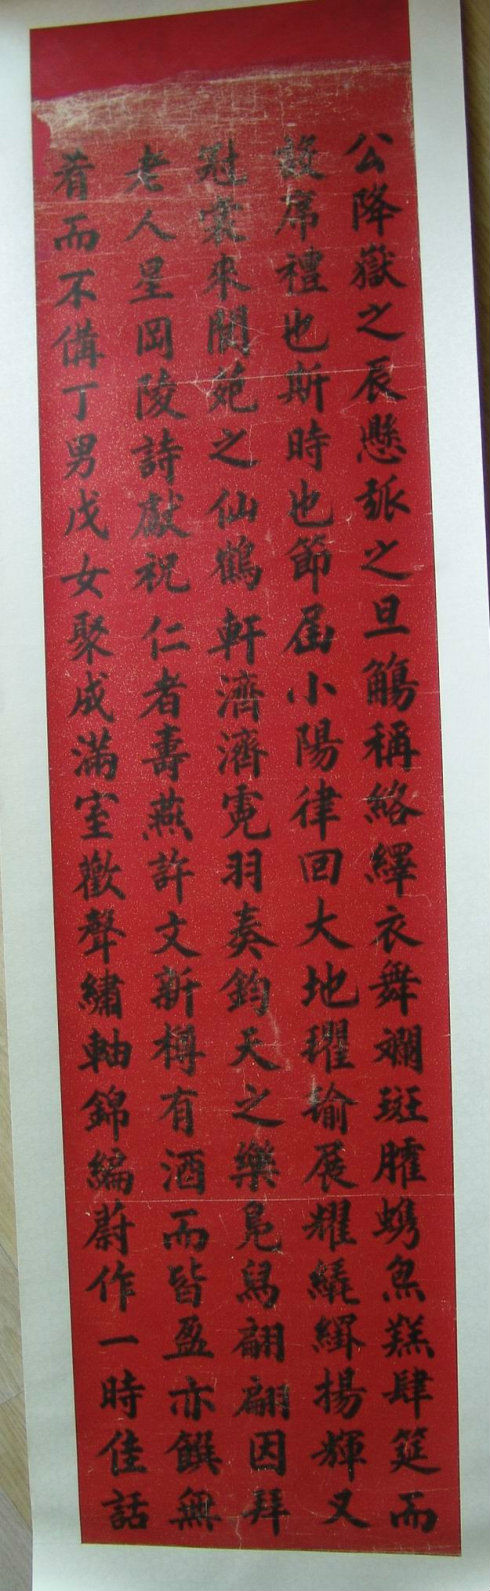 公降嶽之辰懸弧之旦觴稱絡繹衣舞斕斑臛蠵炰羔肆筵而
設席禮也斯時也節屆小陽律回大地瑾瑜展耀纁緋揚輝又
況裳來閬苑之仙鶴軒濟濟霓羽奏鈞天之樂鳧舄翩翩因拜
老人星岡陵詩獻祝仁者壽燕許文新樽有酒而皆盈亦饌無
肴而不備丁男戊女聚成滿室歡聲繡軸錦編蔚作一時佳話